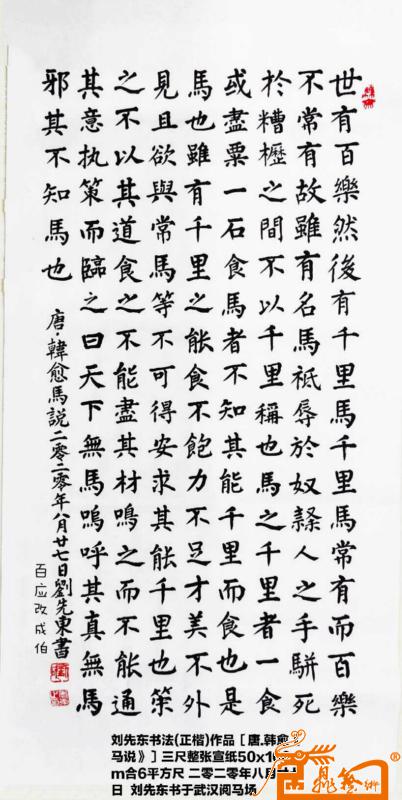 世有百樂然後有千里馬千里馬常有而百樂
不常有故雖有名馬祗辱於奴隸人之手駢死
於糟櫪之間不以千里稱也馬之千里者一食
或盡粟一石食馬者不知其能千里而食也是
馬也雖有千里之能食不飽力不足才美不外
見且欲與常馬等不可得安求其能千里也策
之不以其道食之不能盡其材鳴之而不能通
其意执策而臨之曰天下無馬嗚呼其真無馬
邪其不知馬也
唐·韓愈馬說二零二零年八月廿七日劉先東書
百应改成伯
刘先东书法(正楷)作品［唐.韩愈
马说》］三尺整张宣纸50x1
m合6平方尺 二零二零年八月
日 刘先东书于武汉阅马场